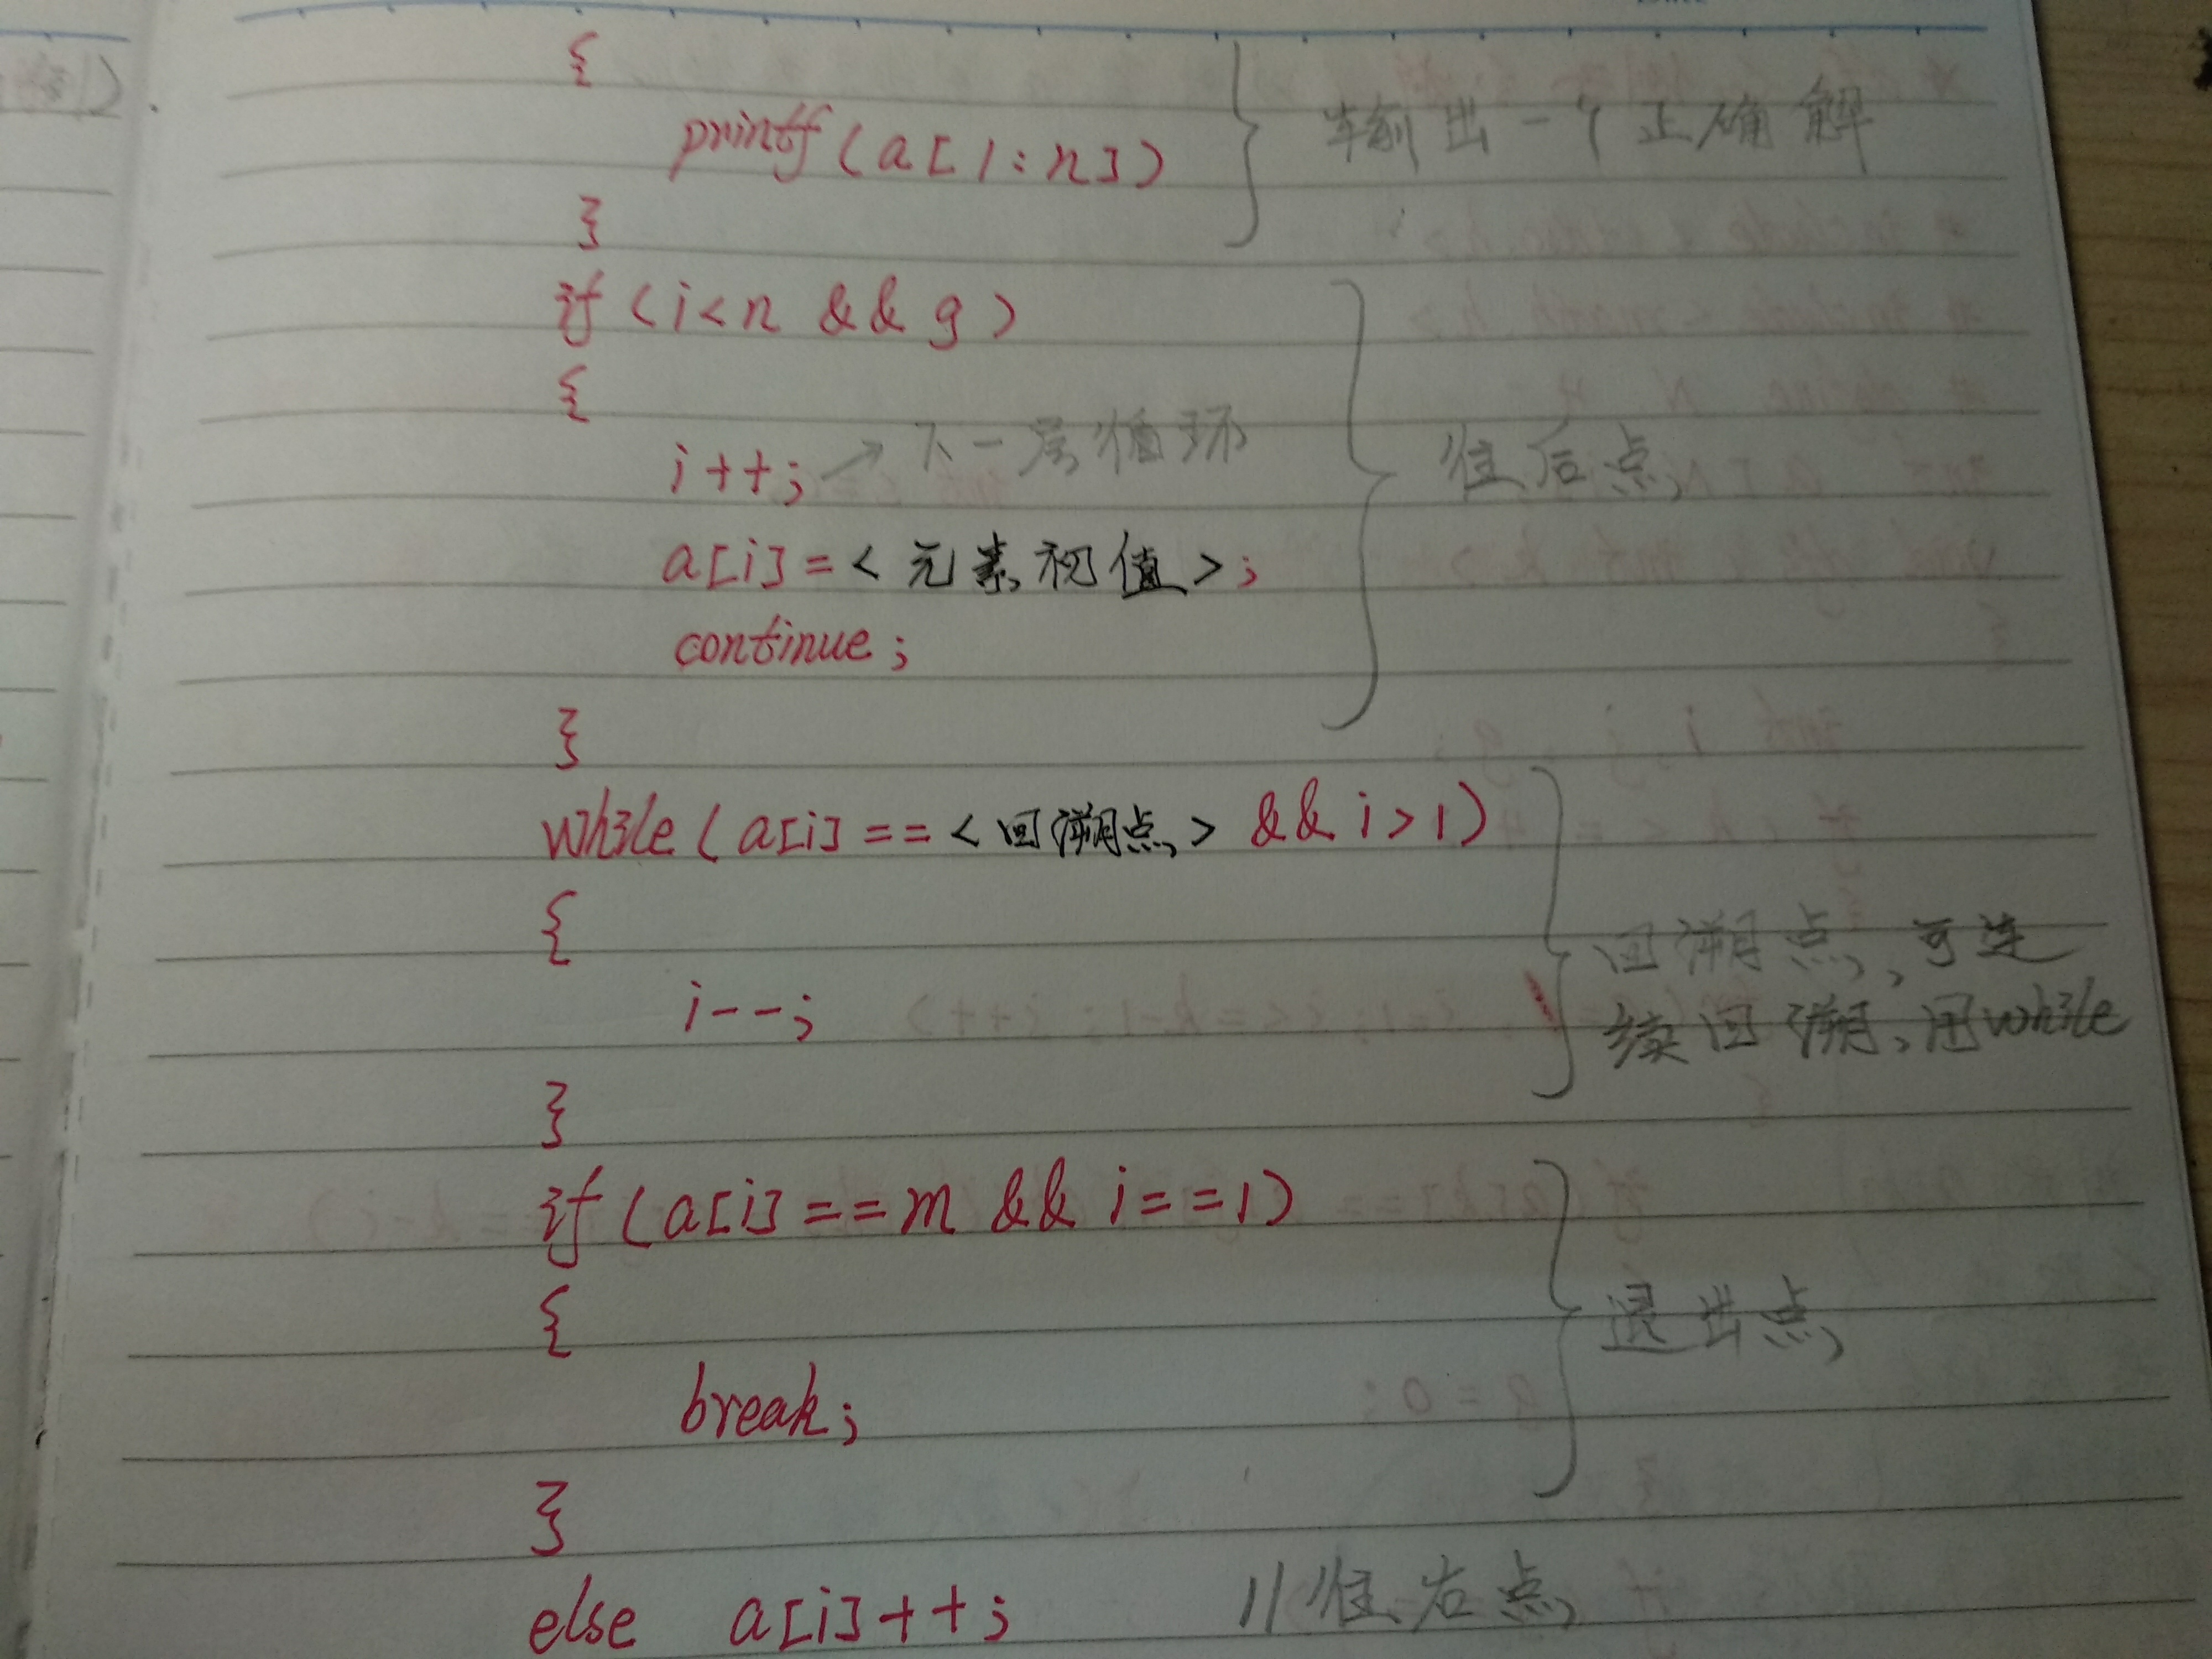 {
printf(a[1:n])
输出一个正确解
}
if(i<n && g)
{
i++; → 下一层循环
往后点
a[i]=<元素初值>;
continue;
}
while(a[i]==<回溯点> && i>1)
{
回溯点,可连
续回溯,用while
i--;
}
if(a[i]==m && i==1)
{
退出点
break;
}
else a[i]++; //往右点